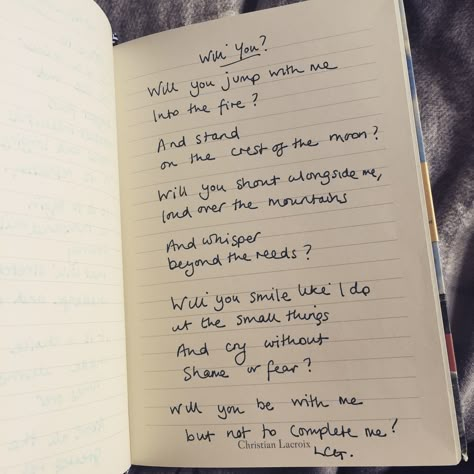 Will You?
Will you jump with me
Into the fire?
And stand
on the crest of the moon?
Will you shout alongside me,
loud over the mountains
And whisper
beyond the reeds?
Will you smile like I do
at the small things
And cry without
Shame or fear?
Will you be with me
but not to complete me?
Christian Lacroix